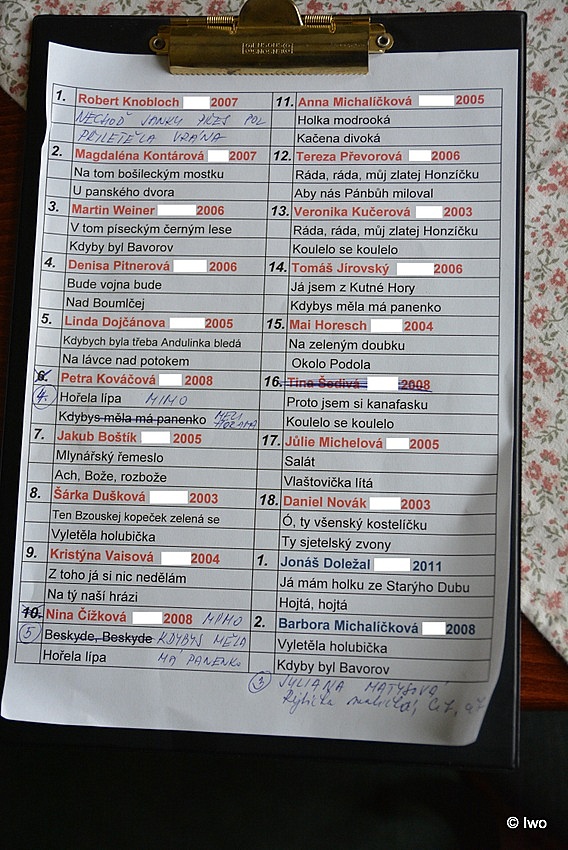 1. Robert Knobloch 2007
NECHOĎ JANKU PŘES POL
PŘILETĚLA VRÁNA
2. Magdaléna Kontárová 2007
Na tom bošileckým mostku
U panského dvora
3. Martin Weiner 2006
V tom píseckým černým lese
Kdyby byl Bavorov
4. Denisa Pitnerová 2006
Bude vojna bude
Nad Boumlčej
5. Linda Dojčánova 2005
Kdybych byla třeba Andulinka bledá
Na lávce nad potokem
6. Petra Kováčová 2008
4. Hořela lípa MIMO
Kdybys měla má panenko
7. Jakub Boštík 2005
Mlynářský řemeslo
Ach, Bože, rozbože
8. Šárka Dušková 2003
Ten Bzouskej kopeček zelená se
Vyletěla holubička
9. Kristýna Vaisová 2004
Z toho já si nic nedělám
Na tý naší hrázi
10. Nina Čížková 2008 MIMO
5 Beskyde, Beskyde KDYBYS MĚLA
Hořela lípa MÁ PANENKO
11. Anna Michalíčková 2005
Holka modrooká
Kačena divoká
12. Tereza Převorová 2006
Ráda, ráda, můj zlatej Honzíčku
Aby nás Pánbůh miloval
13. Veronika Kučerová 2003
Ráda, ráda, můj zlatej Honzíčku
Koulelo se koulelo
14. Tomáš Jírovský 2006
Já jsem z Kutné Hory
Kdybys měla má panenko
15. Mai Horesch 2004
Na zeleným doubku
Okolo Podola
16. Tina Šedivá 2008
Proto jsem si kanafasku
Koulelo se koulelo
17. Jůlie Michelová 2005
Salát
Vlaštovička lítá
18. Daniel Novák 2003
Ó, ty všenský kostelíčku
Ty sjetelský zvony
1. Jonáš Doležal 2011
Já mám holku ze Starýho Dubu
Hojtá, hojtá
2. Barbora Michalíčková 2008
Vyletěla holubička
Kdyby byl Bavorov
3 JULIANA MATYSOVÁ
© Iwo